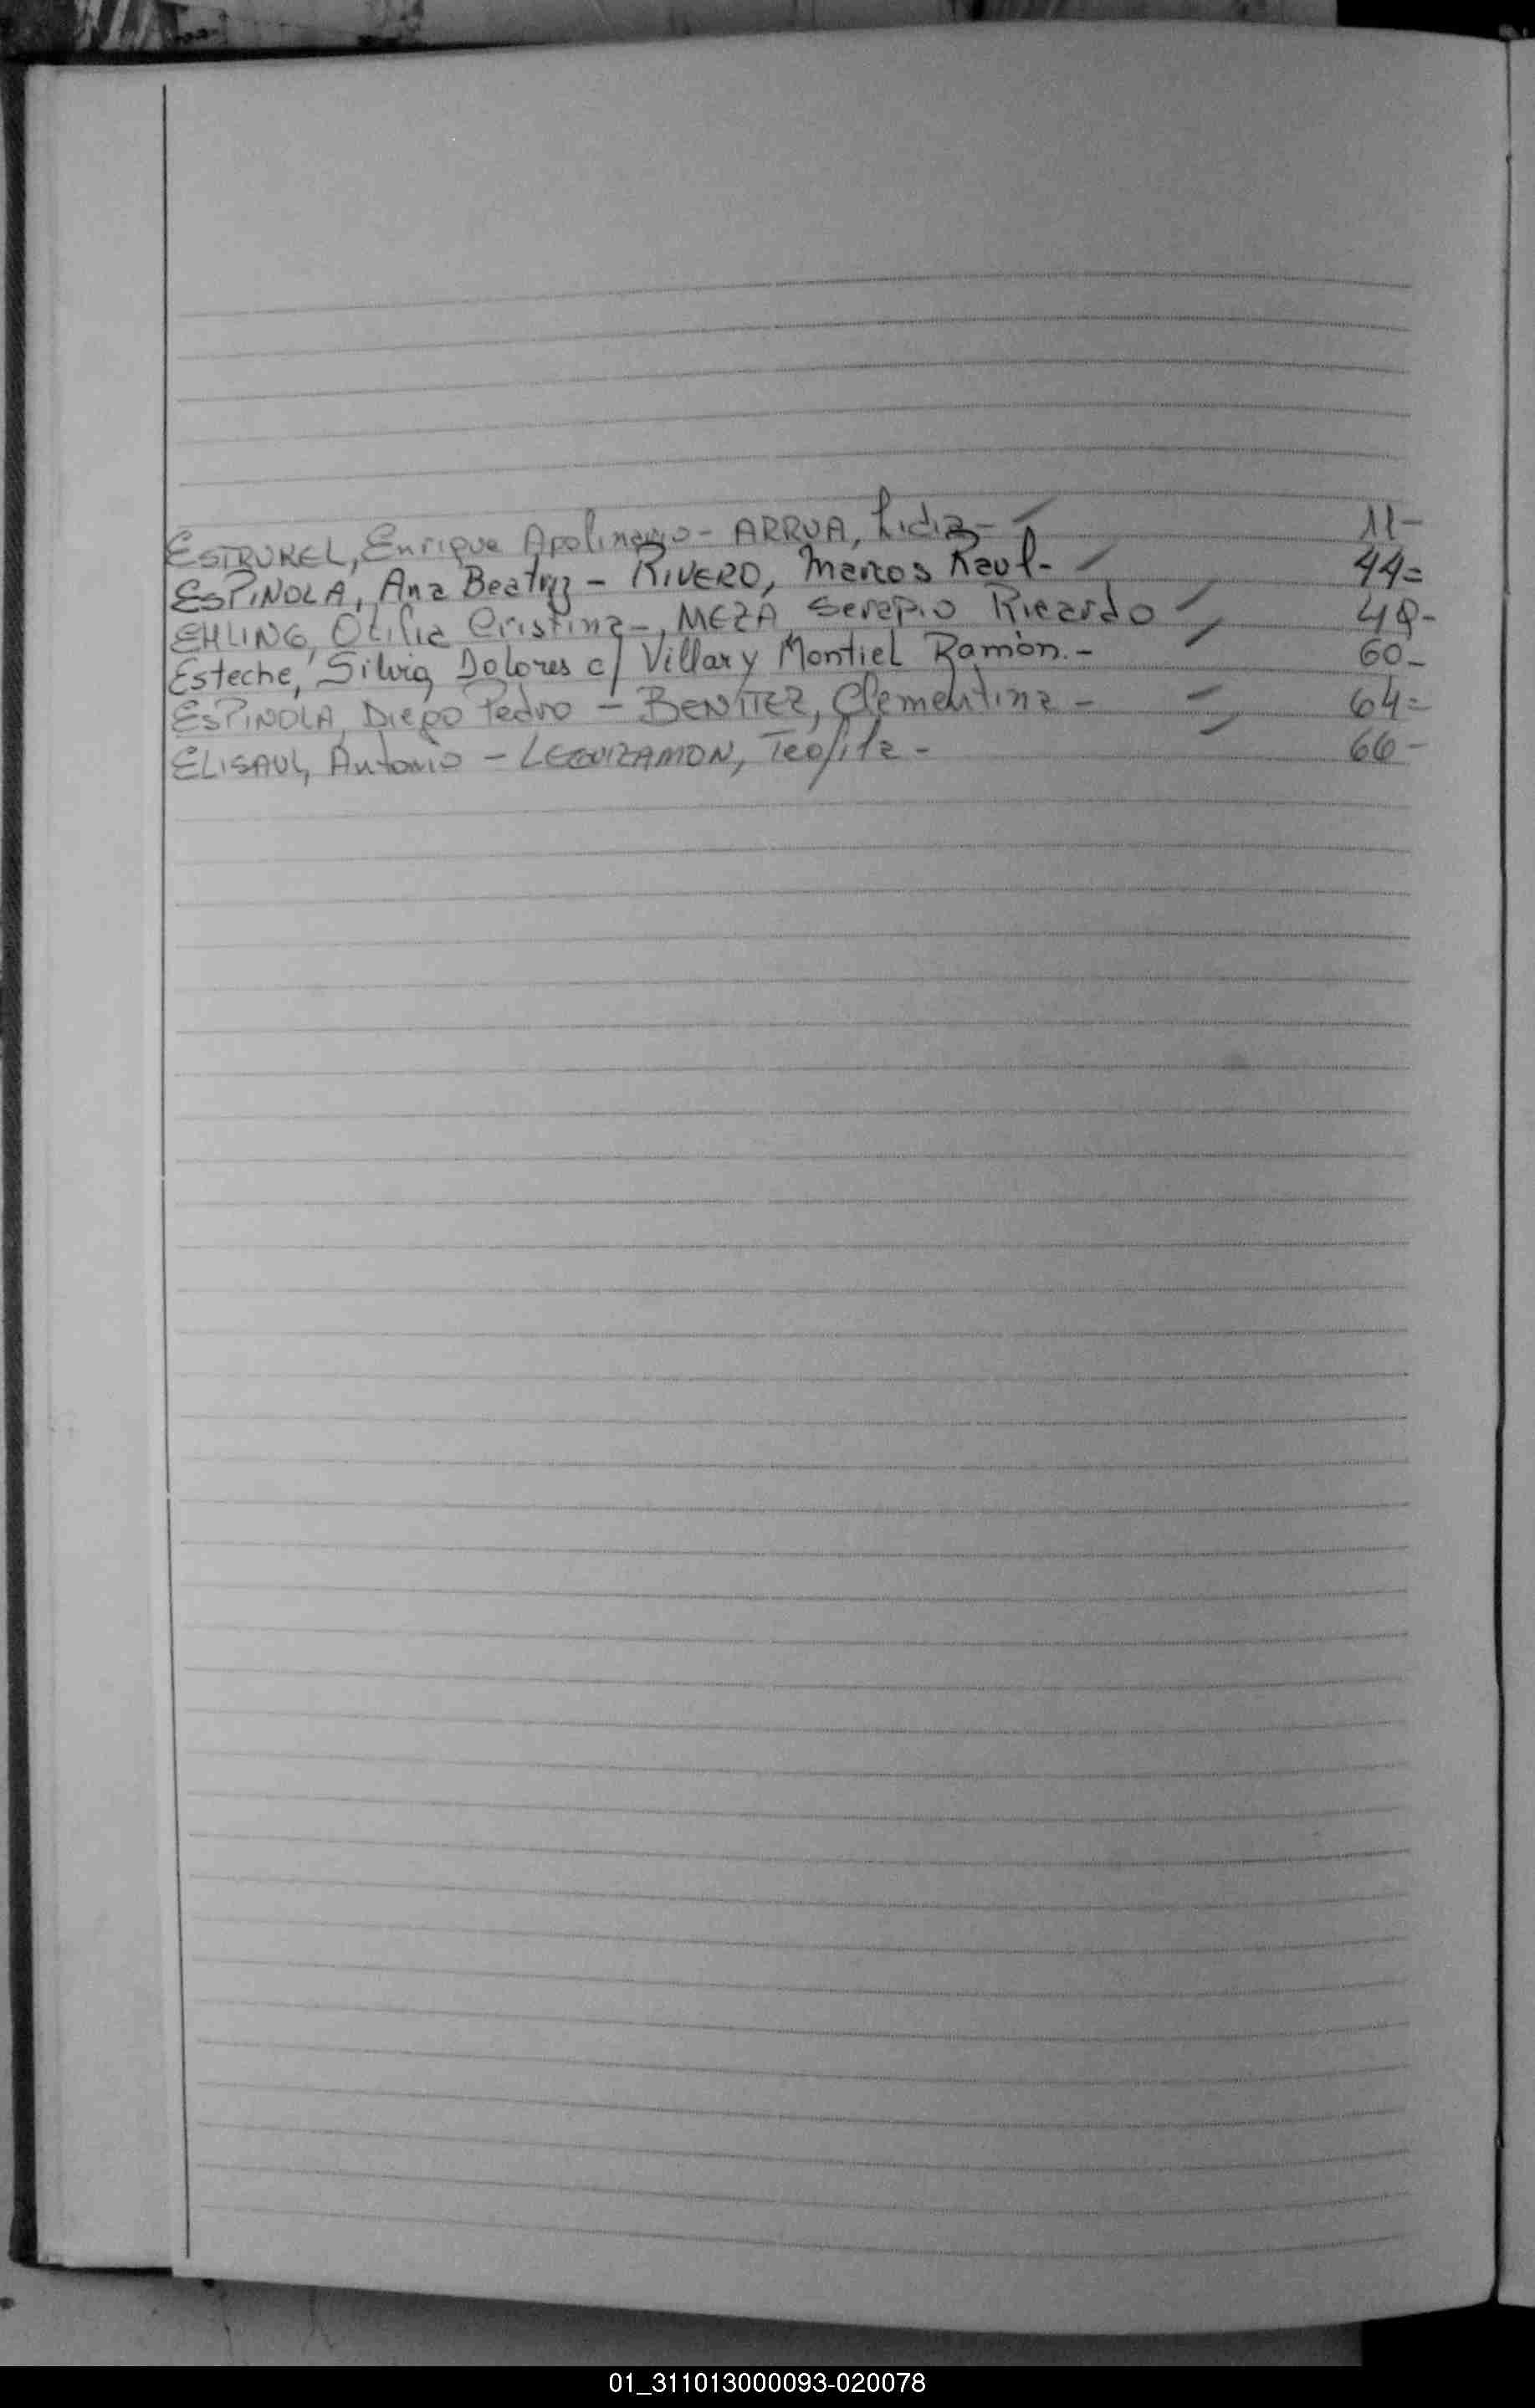 ESTRUKEL, Enrique Apolinario - ARRUA, Lidia - 11 -
ESPINOLA, Ana Beatriz - RIVERO, Marcos Raul - 44 =
EHLING, Otilia Cristina -, MEZA Serapio Ricardo 48 -
Esteche, Silvia Dolores c/ Villar y Montiel Ramón. - 60 -
ESPINOLA, Diego Pedro - BENITEZ, Clementina - 64 =
ELISAUL, Antonio - LEGUIZAMON, Teofila - 66 -
01_311013000093-020078